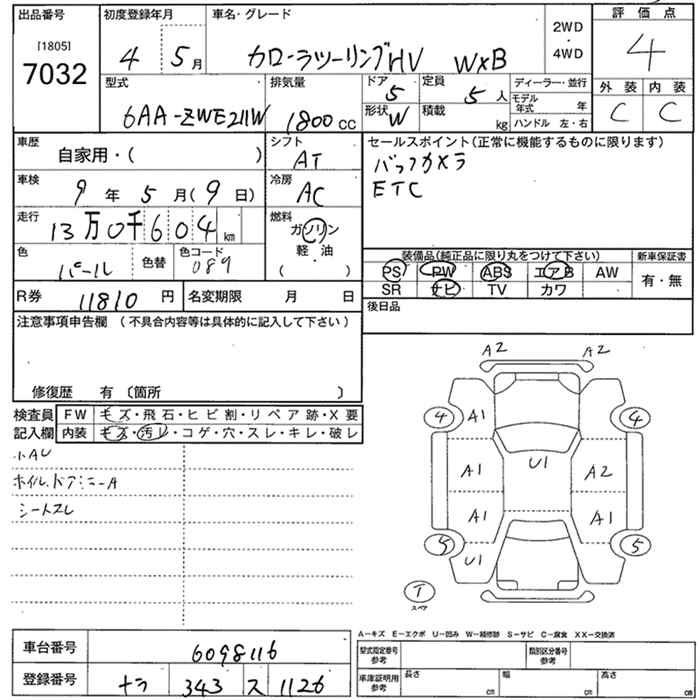 出品番号 初度登録年月 車名・グレード 2WD・4WD 評価点
[1805]
7032 4 5月 カローラツーリングHV W×B 4
型式 排気量 ドア 5 定員 5人 ディーラー・並行 外装 内装
6AA-ZWE211W 1800cc 形状 W 積載 kg モデル年式 年 C C
ハンドル 左・右
車歴 自家用・( ) シフト AT セールスポイント(正常に機能するものに限ります)
バックカメラ
ETC
車検 9年5月(9日) 冷房 AC
走行 13万0千604km 燃料 ガソリン
軽・油
( )
色 パール 色替 色コード 089
装備品(純正品に限り丸をつけて下さい) 新車保証書
PS PW ABS エアB AW 有・無
SR ナビ TV カワ
R券 11810円 名変期限 月 日 後日品
注意事項申告欄 (不具合内容等は具体的に記入して下さい)
修復歴 有 〔箇所 〕
検査員 FW キズ・飛石・ヒビ割・リペア跡・X要
記入欄 内装 キズ・汚レ・コゲ・穴・スレ・キレ・破レ
小AU
シートスレ
A2 A2
4 A1 4
A1 U1 A2
A1 A1
5 U1 5
T
スペア
A-キズ E-エクボ U-凹み W-補修跡 S-サビ C-腐食 XX-交換済
車台番号 6098116
型式指定番号 参考 類別区分番号 参考
登録番号 ナラ 343 ス 1126
車庫証明欄 参考 長さ cm 幅 cm 高さ cm